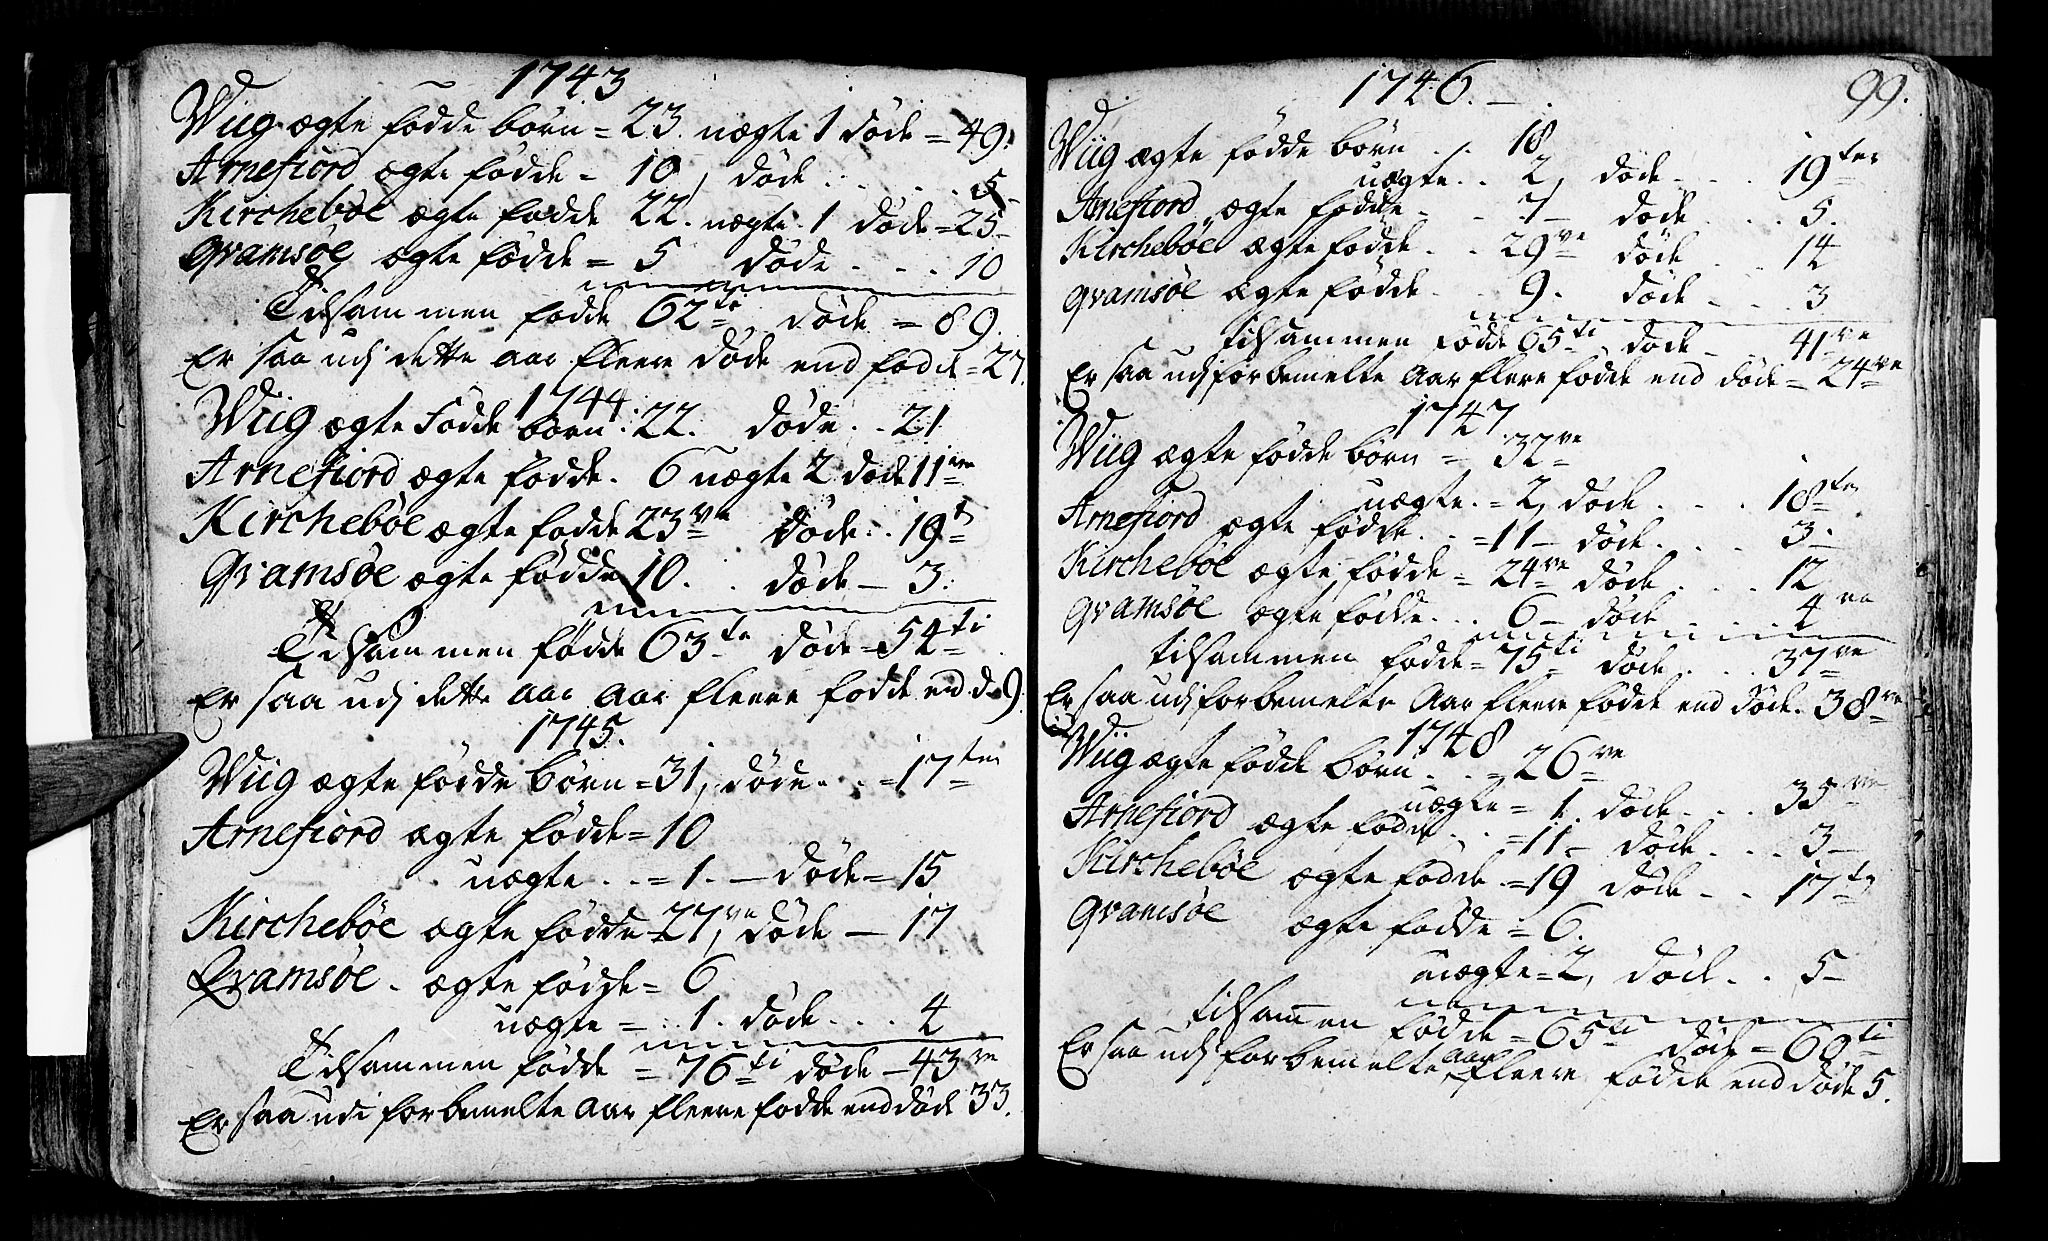 1743
Wiig ægte fødde børn = 23. uægte 1 døde = 49.
Arnefiord ægte fødde = 10, døde . . . . 5
Kirchebøe ægte fødde 22. uægte . 1 døde = 25
Qvamsøe ægte fødde = 5 døde . . . 10
Tilsammen fødde 62ti døde = 89.
Er saa udj dette aar fleere døde end fødde = 27.
1744
Wiig ægte Fødde børn : 22. døde . . 21
Arnefiord ægte fødde . 6 uægte 2 døde 11ve
Kirchebøe ægte fødde 23ve døde . . 19
Qvamsøe ægte fødde 10. døde — 3.
Tilsammen fødde 63te døde = 54ti
Er saa udj dette aar aar fleere fødde end dø 9
1745.
Wiig ægte fødde børn = 31, døde . . = 17ten
Arnefiord ægte fødde = 10
uægte . . = 1. — døde = 15
Kirchebøe ægte fødde = 27ve, døde — 17
Qvamsøe . ægte fødde = 6
uægte = . . 1. døde . . . 4
Tilsammen fødde = 76ti døde — 43ve
Er saa udi forbemelte aar fleere fødde end døde 33.
99.
1746. —
Wiig ægte fødde børn . . 18
uægte . . 2, døde . . . 19ten
Arnefiord ægte fødde . . 7 — døde . . . 5.
Kirchebøe ægte fødde . . 29ve døde . . 14
Qvamsøe ægte fødde . . 9. døde . . . 3
tilsammen fødde 65ti døde 41ve
Er saa udj forbemelte Aar flere fødde end døde = 24ve
1747
Wiig ægte fødde børn = 32ve
uægte . = 2, døde . . . 18ten
Arnefiord ægte fødde . . = 11 — døde . . . 3.
Kirchebøe ægte fødde = 24ve døde . . . 12
Qvamsøe ægte fødde . . . 6 — døde . . . 4ve
tilsammen fødde = 75ti døde . . . 37ve
Er saa udj forbemelte Aar fleere fødde end døde . 38ve
1748
Wiig ægte fødde børn . . = 26ve
uægte = 1. døde . . . 35ve
Arnefiord ægte fødde . . = 11 — døde . . . 3 —
Kirchebøe ægte fødde . = 19 døde . . 17te
Qvamsøe ægte fødde = 6.
uægte = 2, døde . . 5 —
tilsamen fødde = 65ti døde = 60ti
Er saa udj forbemelte aar fleere fødde end døde 5.